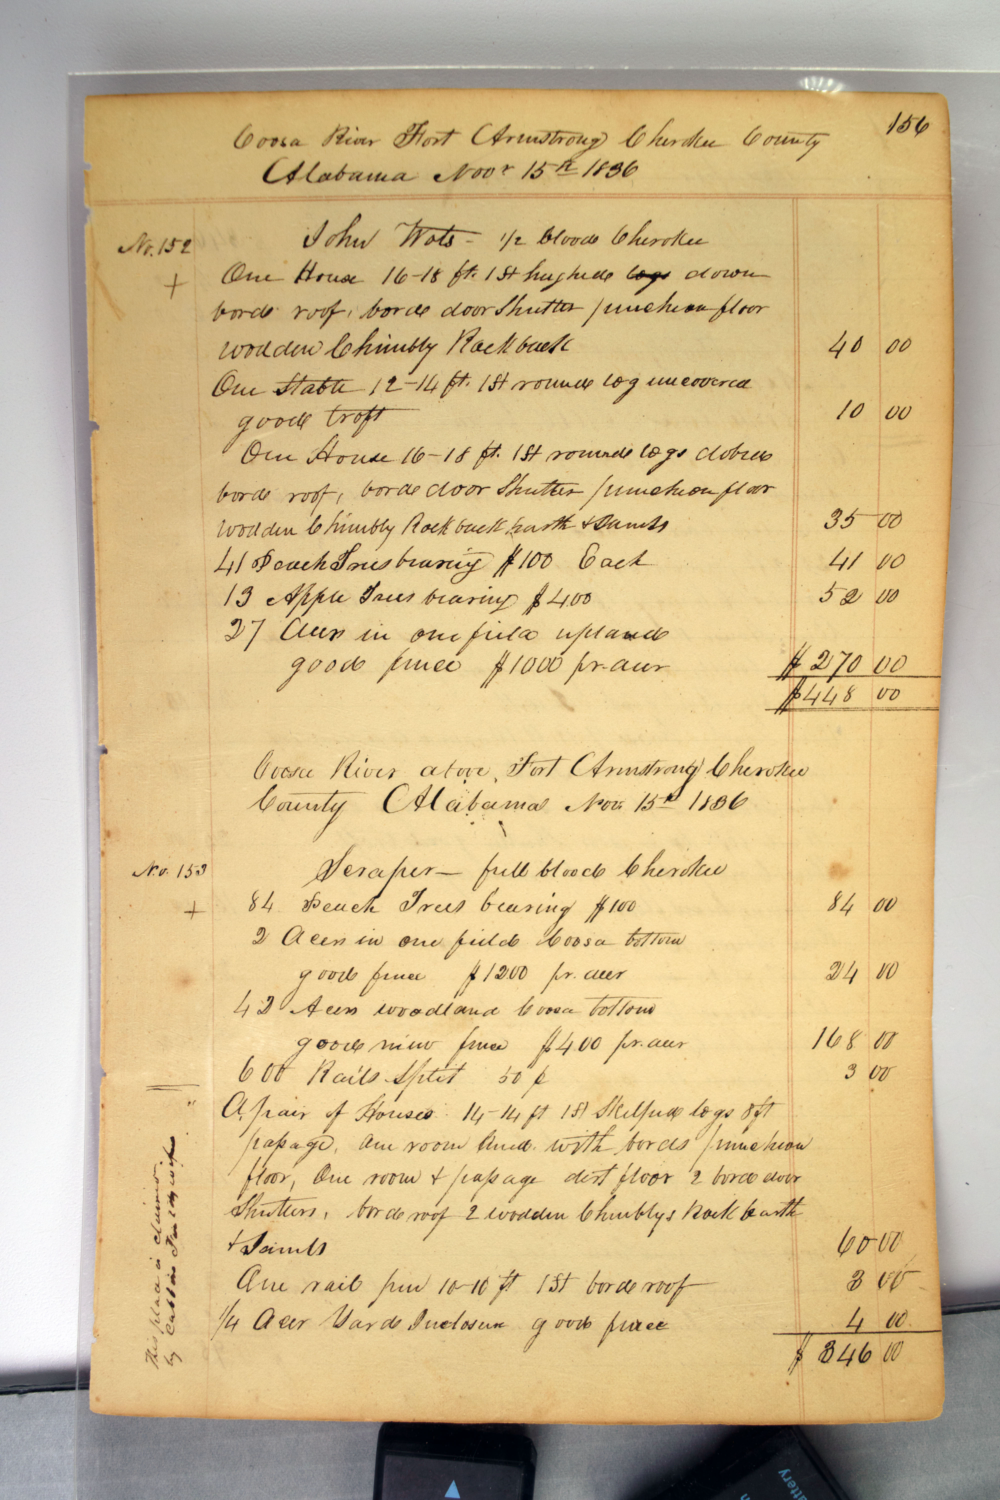 156
Coosa River Fort Armstrong Cherokee County
Alabama Novr 15th 1836
No. 152
John Wats - 1/2 blood Cherokee
+ One House 16-18 ft. 1st hughed logs down
bord roof, bord door Shutter puncheon floor
wodden Chimbly Rock back 40 00
One Stable 12-14 ft. 1st round log uncovered
good troft 10 00
One House 16-18 ft. 1st round logs dobed
bord roof, bord door Shutter puncheon floor
wodden Chimbly Rock back harth & Jambs 35 00
41 Peach Trees bearing $100 Each 41 00
13 Apple Trees bearing $400 52 00
27 Acers in one field upland
good fence $1000 pr. acer $270 00
$448 00
Coosa River above Fort Armstrong Cherokee
County Alabama Nov. 15th 1836
No. 153
Scraper - full blood Cherokee
+ 84 Peach Trees bearing $100 84 00
2 Acers in one field Coosa bottom
good fence $1200 pr. acer 24 00
42 Acers woodland Coosa bottom
good new fence $400 pr. acer 168 00
600 Rails Split 50 ¢ 3 00
A pair of Houses 14-14 ft 1st Skelped logs 8 ft
passage, one room lined with bords puncheon
floor, One room & passage dirt floor 2 bord door
Shutters, bord roof 2 wodden Chimblys Rock harth
& Jambs 60 00
One rail pen 10-10 ft 1st bord roof 3 00
1/4 Acer Yard Inclosure good fence 4 00
$ 346 00
This place is claimed
by